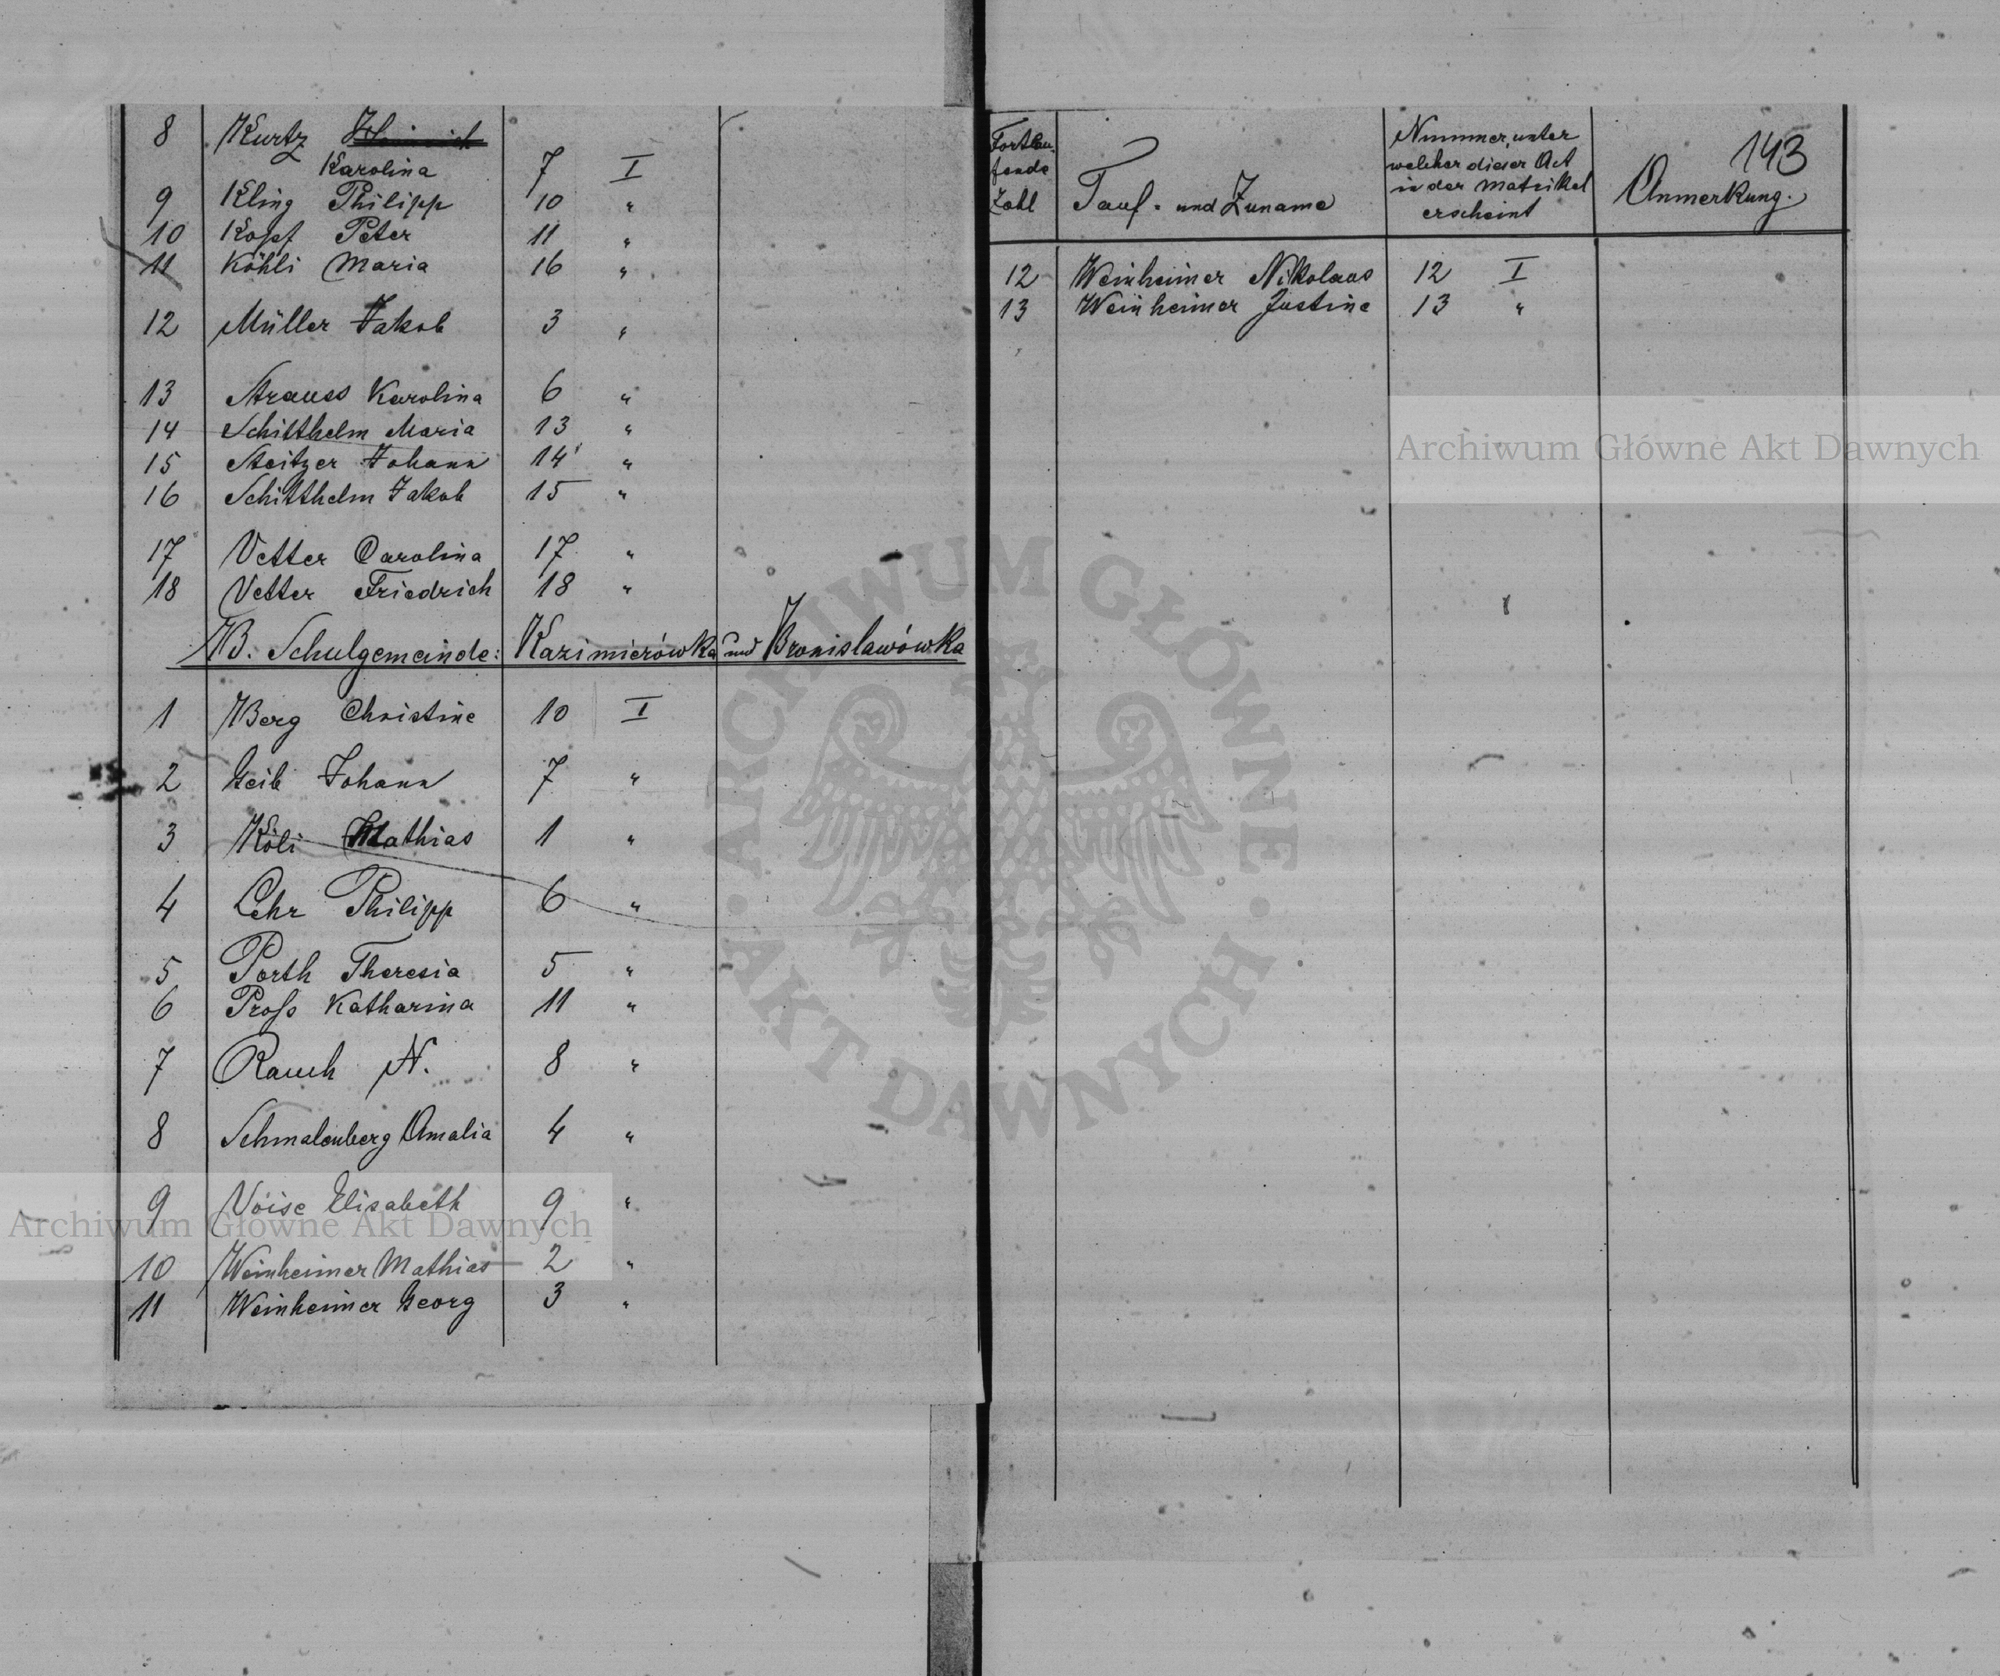 8 Kurtz Heinrich
Karolina 7 I
9 Kling Philipp 10 "
10 Kopf Peter 11 "
11 Köhli Maria 16 "
12 Müller Jakob 3 "
13 Strauss Karolina 6 "
14 Schitthelm Maria 13 "
15 Steitzer Johann 14 "
16 Schitthelm Jakob 15 "
17 Vetter Carolina 17 "
18 Vetter Friedrich 18 "
B. Schulgemeinde: Kazimierówka und Bronislawówka
1 Berg Christine 10 I
2 Geib Johann 7 "
3 Köli Mathias 1 "
4 Lehr Philipp 6 "
5 Porth Theresia 5 "
6 Proß Katharina 11 "
7 Rauch N. 8 "
8 Schmalenberg Amalia 4 "
9 Voise Elisabeth 9 "
10 Weinheimer Mathias 2 "
11 Weinheimer Georg 3 "
143
Fortlau-
fende
Zahl
Tauf- und Zuname
Nummer, unter
welcher dieser Act
in der Matrikel
erscheint
Anmerkung.
12 Weinheimer Nikolaus 12 I
13 Weinheimer Justine 13 "
Archiwum Główne Akt Dawnych
Archiwum Główne Akt Dawnych
ARCHIWUM GŁÓWNE · AKT DAWNYCH ·